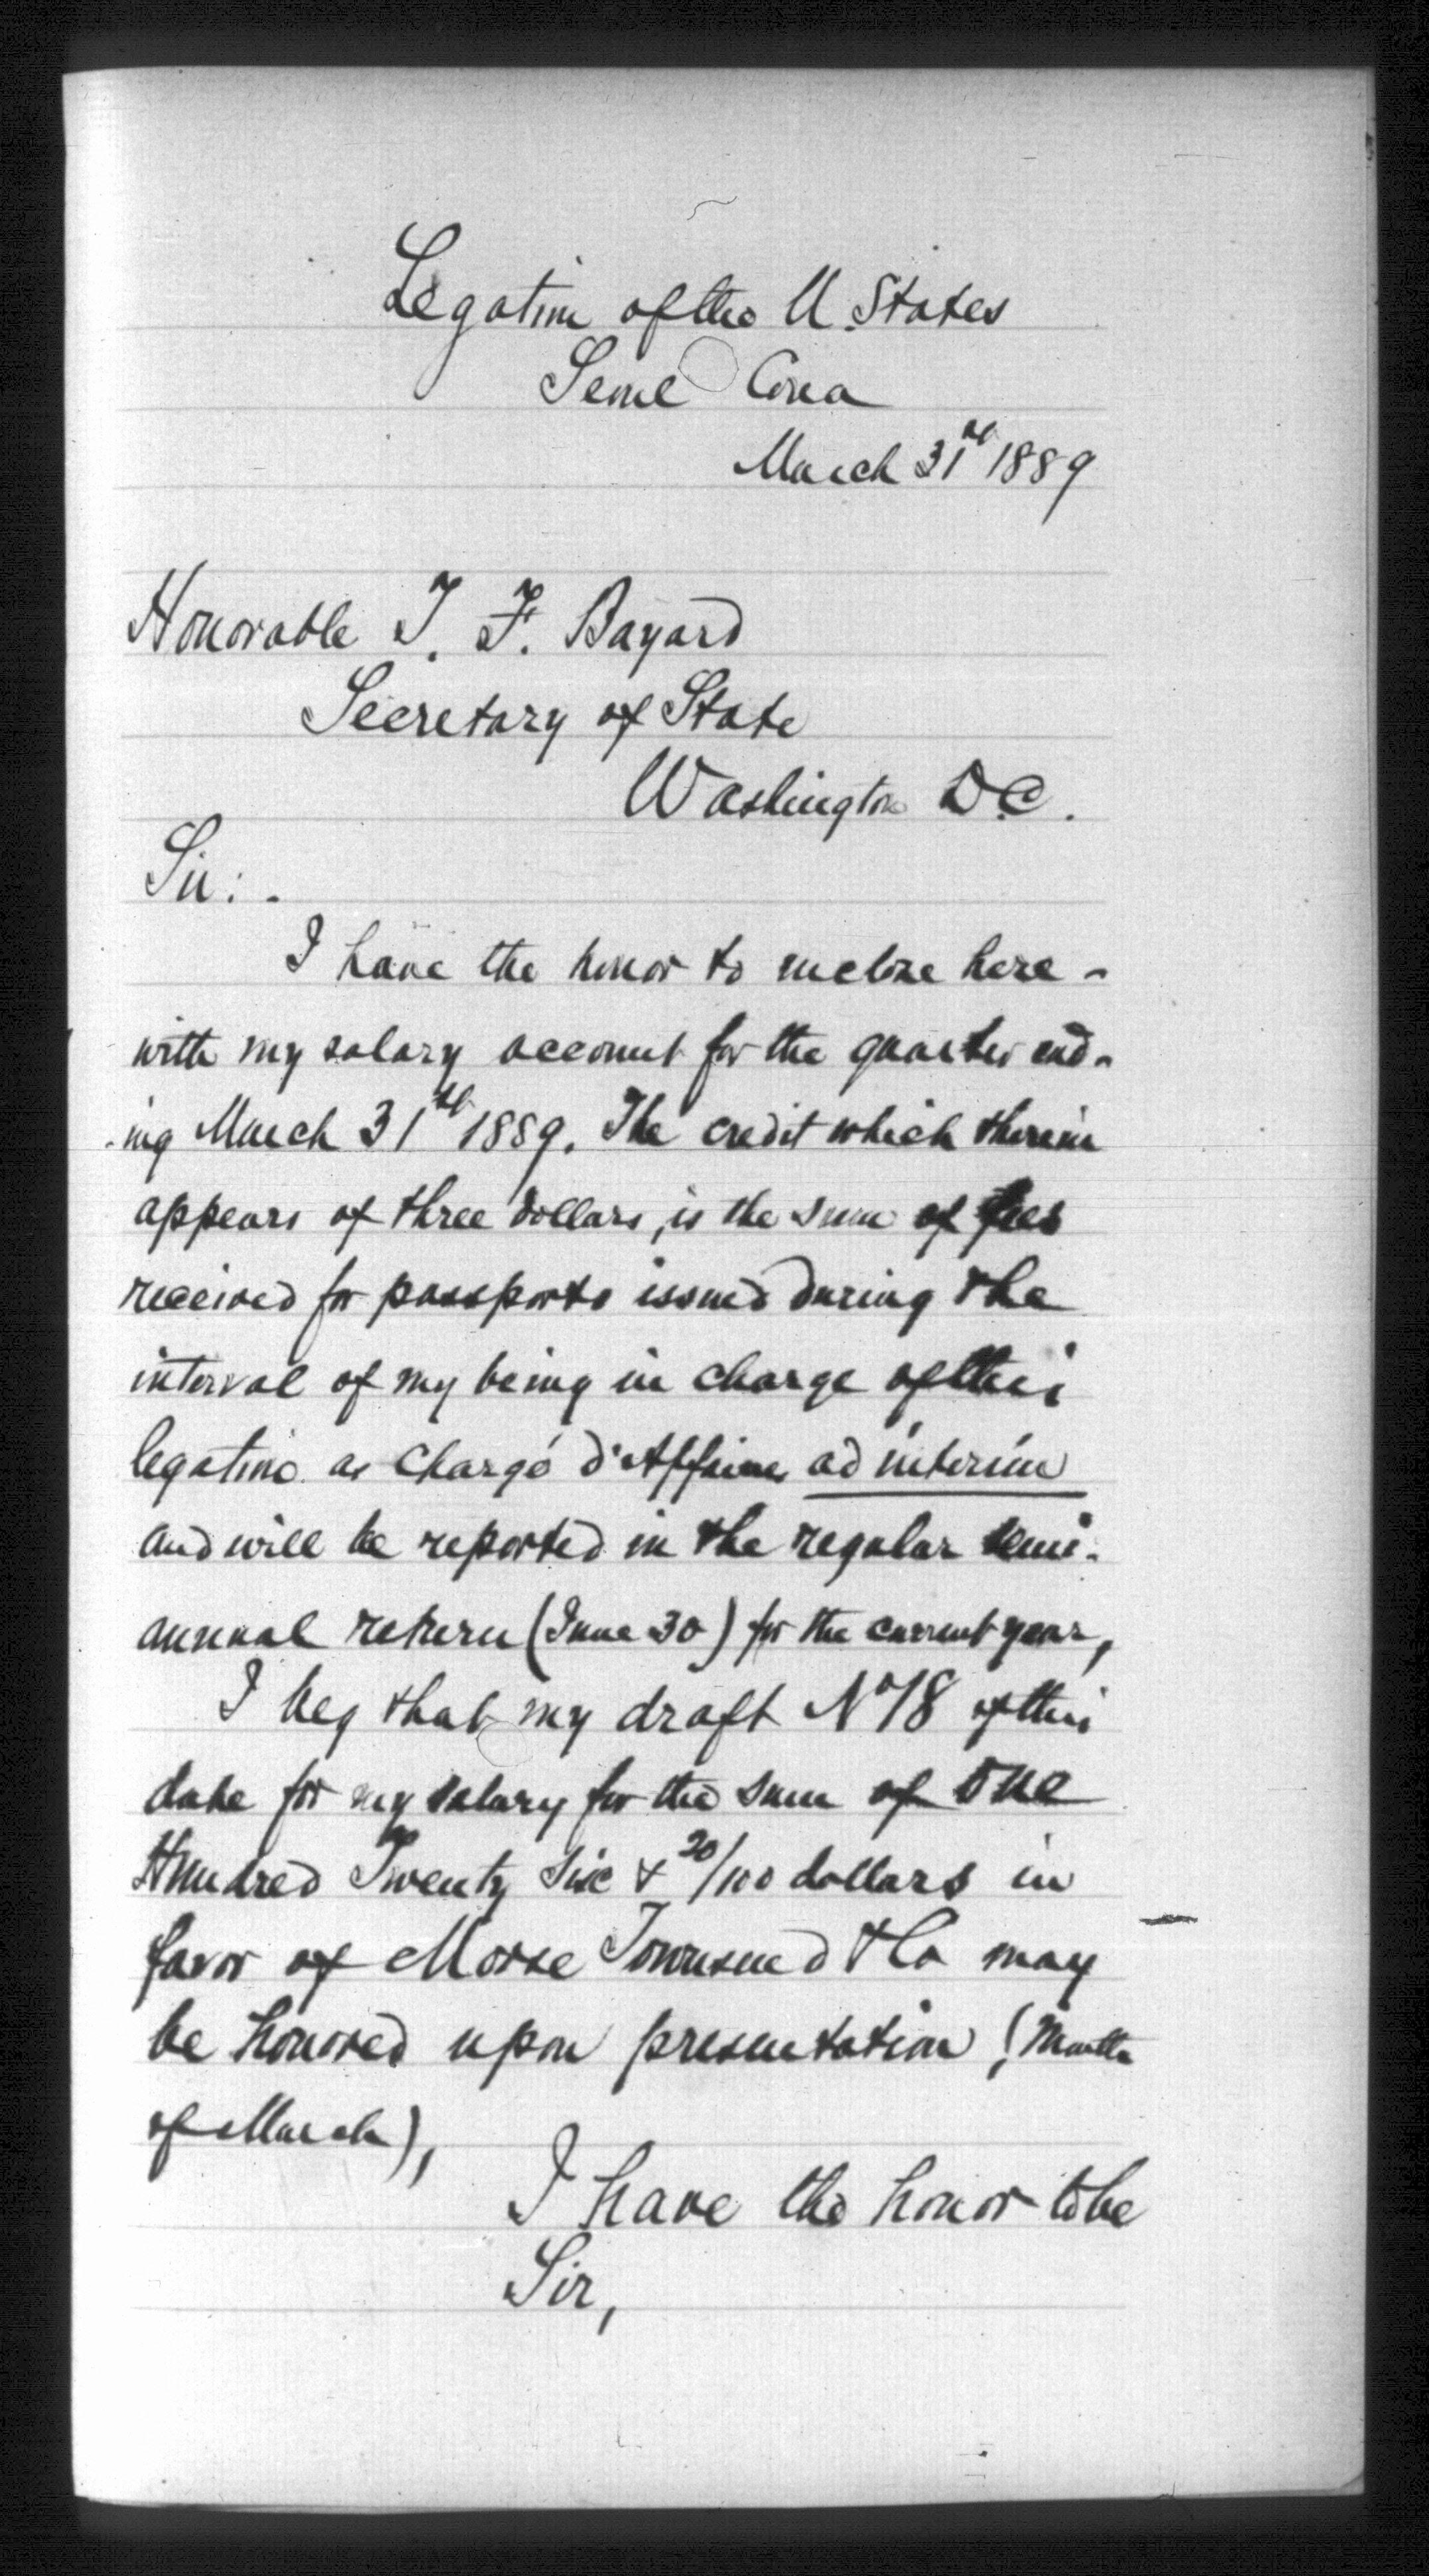 Legation of the U. States
Seoul Corea
March 31st 1889
Honorable T. F. Bayard
Secretary of State
Washington D.C.
Sir:-
I have the honor to inclose here-
with my salary account for the quarter end-
-ing March 31st 1889. The credit which therein
appears of three dollars, is the sum of fees
received for passports issued during the
interval of my being in charge of this
legation as Chargé d'Affaires ad interim
and will be reported in the regular semi-
annual return (June 30) for the current year,
I beg that my draft No 78 of this
date for my salary for the sum of One
Hundred Twenty Six & 20/100 dollars in
favor of Morse Townsend & Co may
be honored upon presentation (Month
of March),
I have the honor to be
Sir,